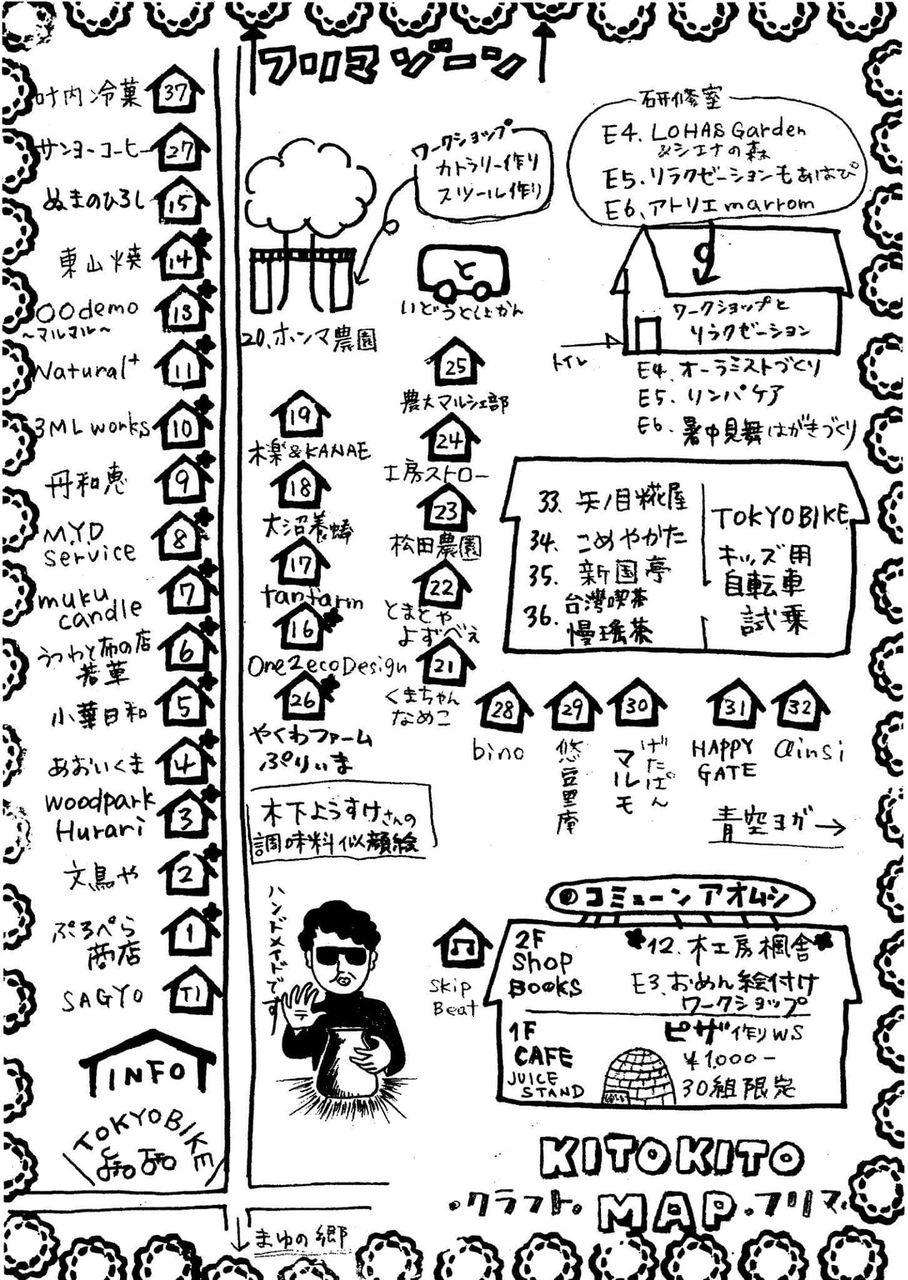 フリマゾーン
叶内冷菓 37
サンヨーコーヒー 27
ぬまのひろし 15
東山焼 14
〇〇demo
〜マルマル〜 13
Natural+ 11
3ML works 10
丹和恵 9
M.Y.D
service 8
muku
candle 7
うつわと布の店
若草 6
小華日和 5
あおいくま 4
woodpark
Hurari 3
文鳥や 2
ぷろぺら
商店 1
SAGYO T1
INFO
TOKYOBIKE
ワークショップ
カトラリー作り
スツール作り
20.ホンマ農園
と
いどうとしょかん
研修室
E4. LOHAS Garden
&シエナの森
E5.リラクゼーションもあはぴ
E6.アトリエmarrom
ワークショップと
リラクゼーション
トイレ
E4.オーラミストづくり
E5.リンパケア
E6.暑中見舞はがきづくり
25
農大マルシェ部
24
工房ストロー
23
松田農園
22
とまとや
よずべぇ
21
くまちゃん
なめこ
19
木楽&KANAE
18
大沼養蜂
17
tanfarm
16
One2ecoDesign
26
やくわファーム
ぷりぃま
33.矢ノ目糀屋
34.こめやかた
35.新国亭
36.台湾喫茶
慢瑤茶
TOKYOBIKE
キッズ用
自転車
試乗
28
bino
29
悠豆里庵
30
げたぱん
マルモ
31
HAPPY
GATE
32
ainsi
青空ヨガ
木下ようすけさんの
調味料似顔絵
ハンドメイドです
Skip
Beat
コミューンアオムシ
2F
Shop
BOOKS
12.木工房楓舎
E3.おめん絵付け
ワークショップ
1F
CAFE
JUICE
STAND
ピザ作りWS
¥1,000-
30組限定
KITOKITO
MAP
・クラフト・
・フリマ・
まゆの郷